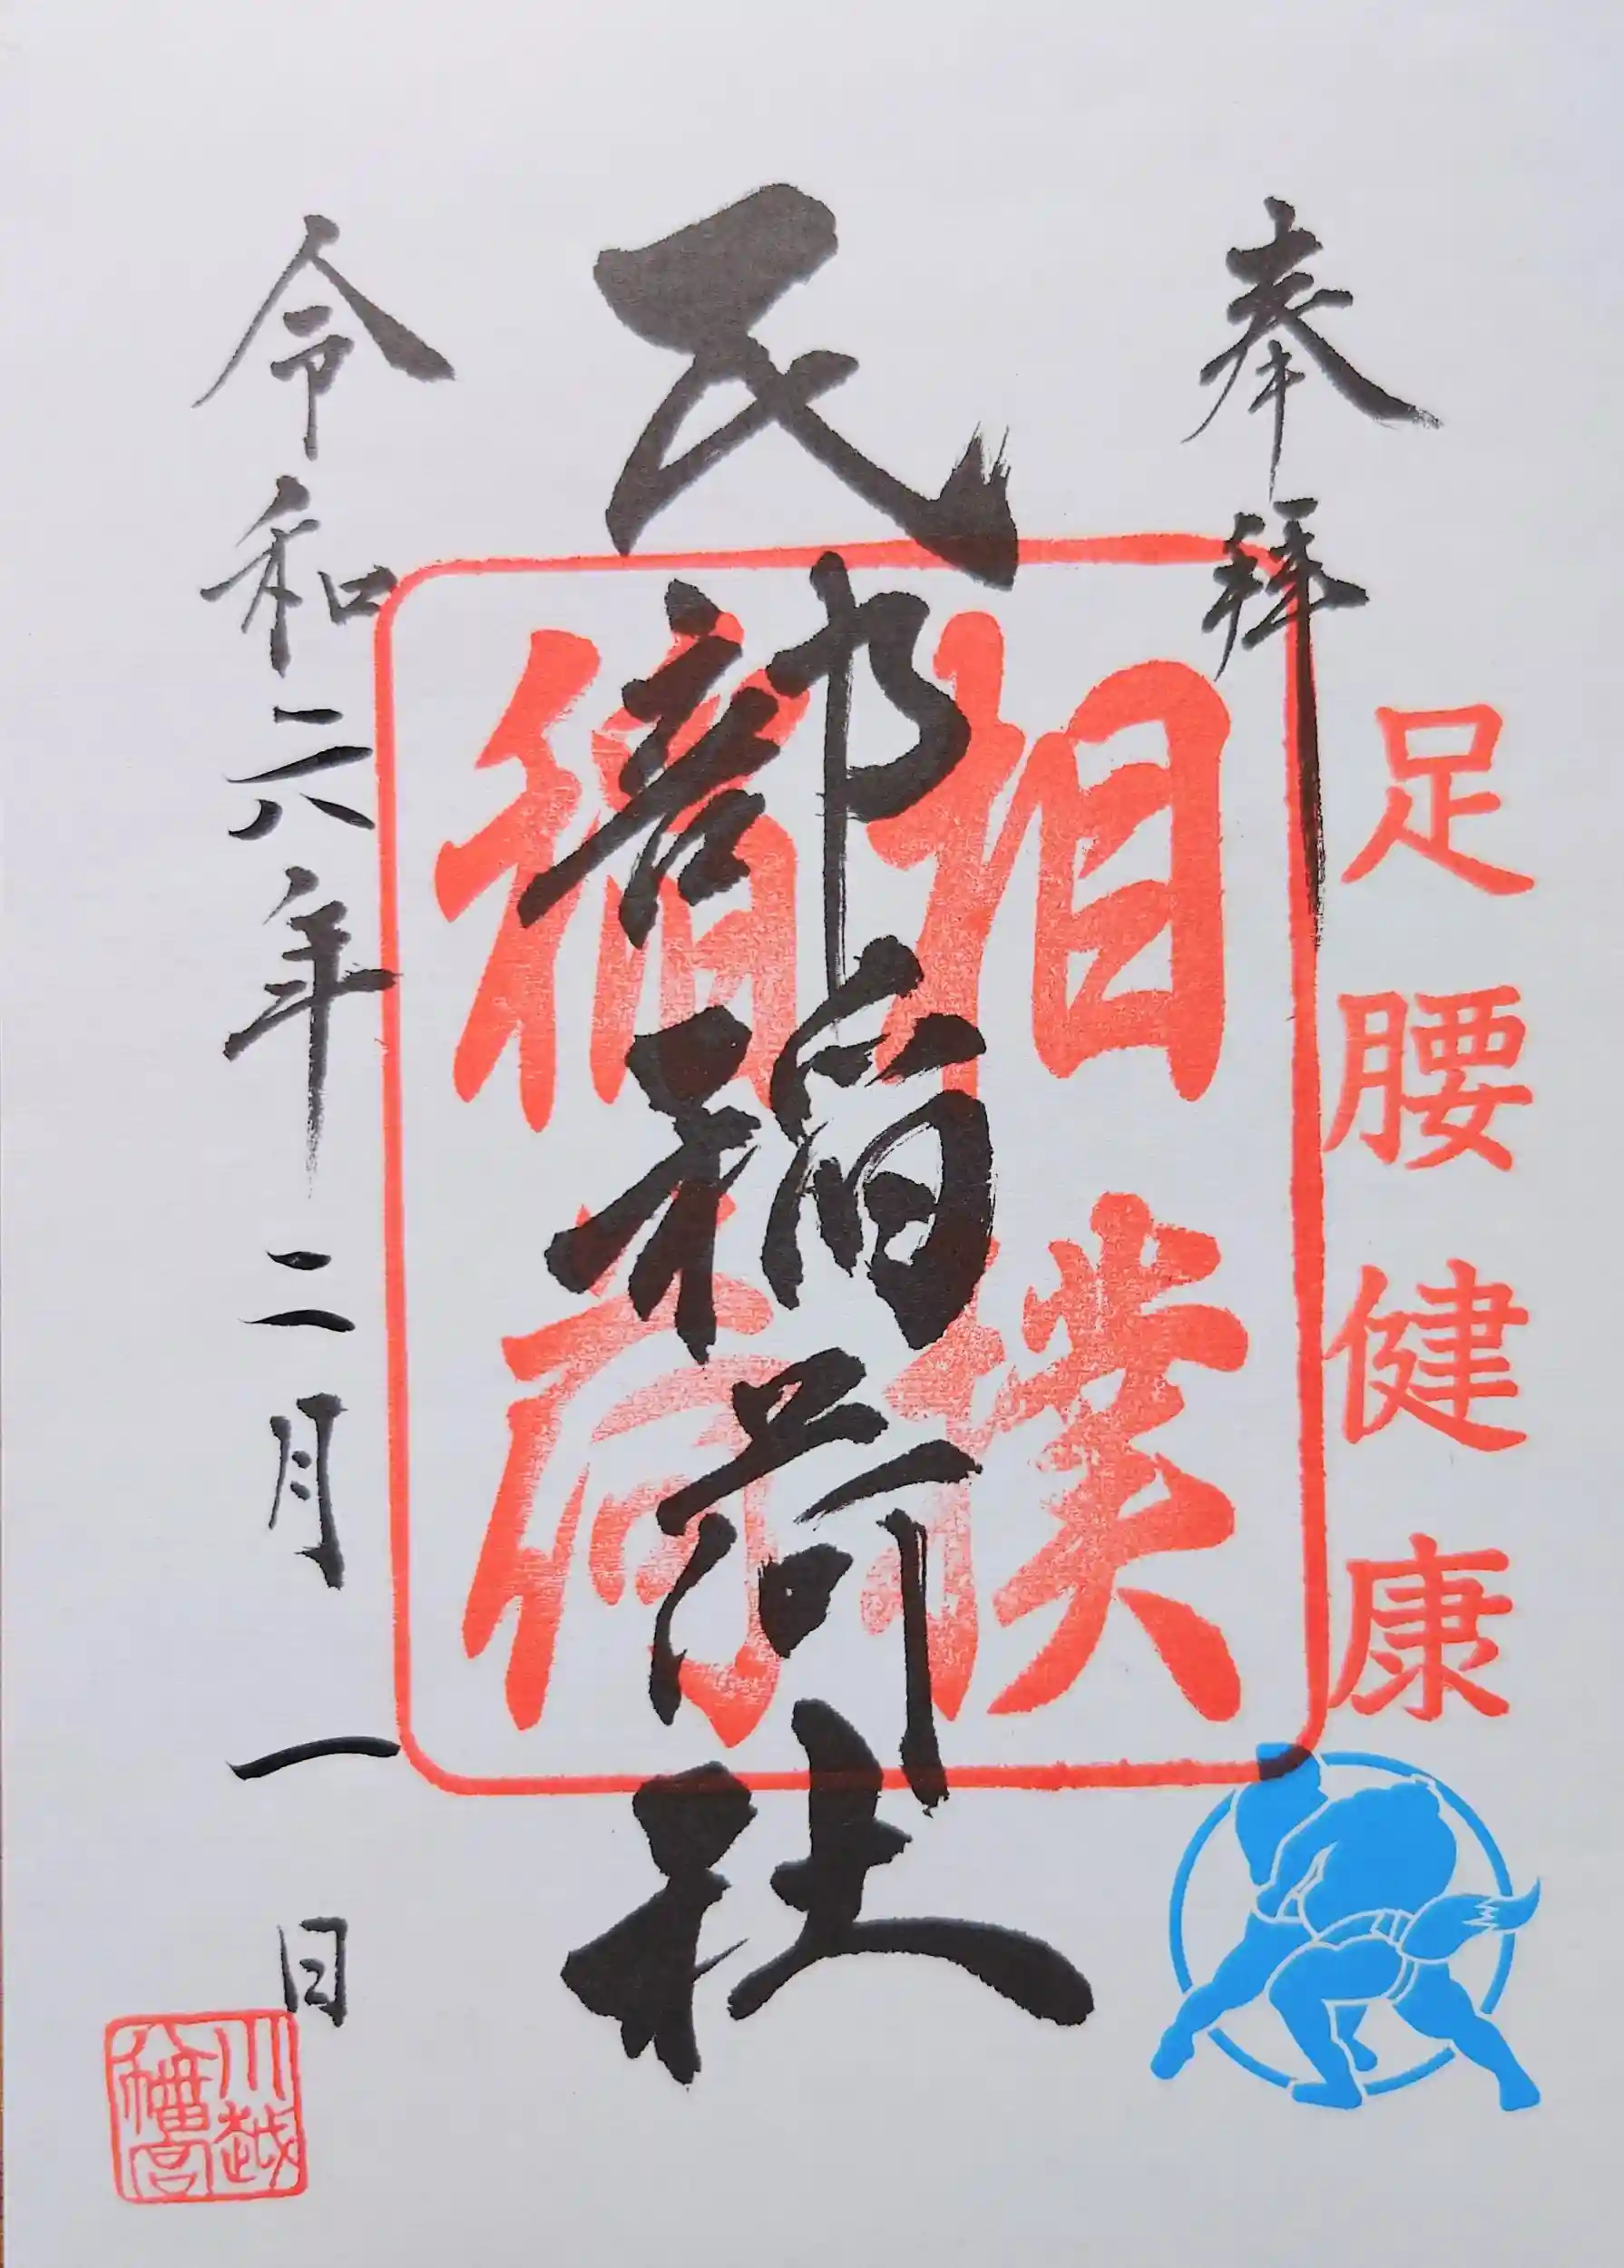 奉拝
足腰健康
相撲
稲荷
民部稲荷社
令和六年二月一日
川越
八幡宮